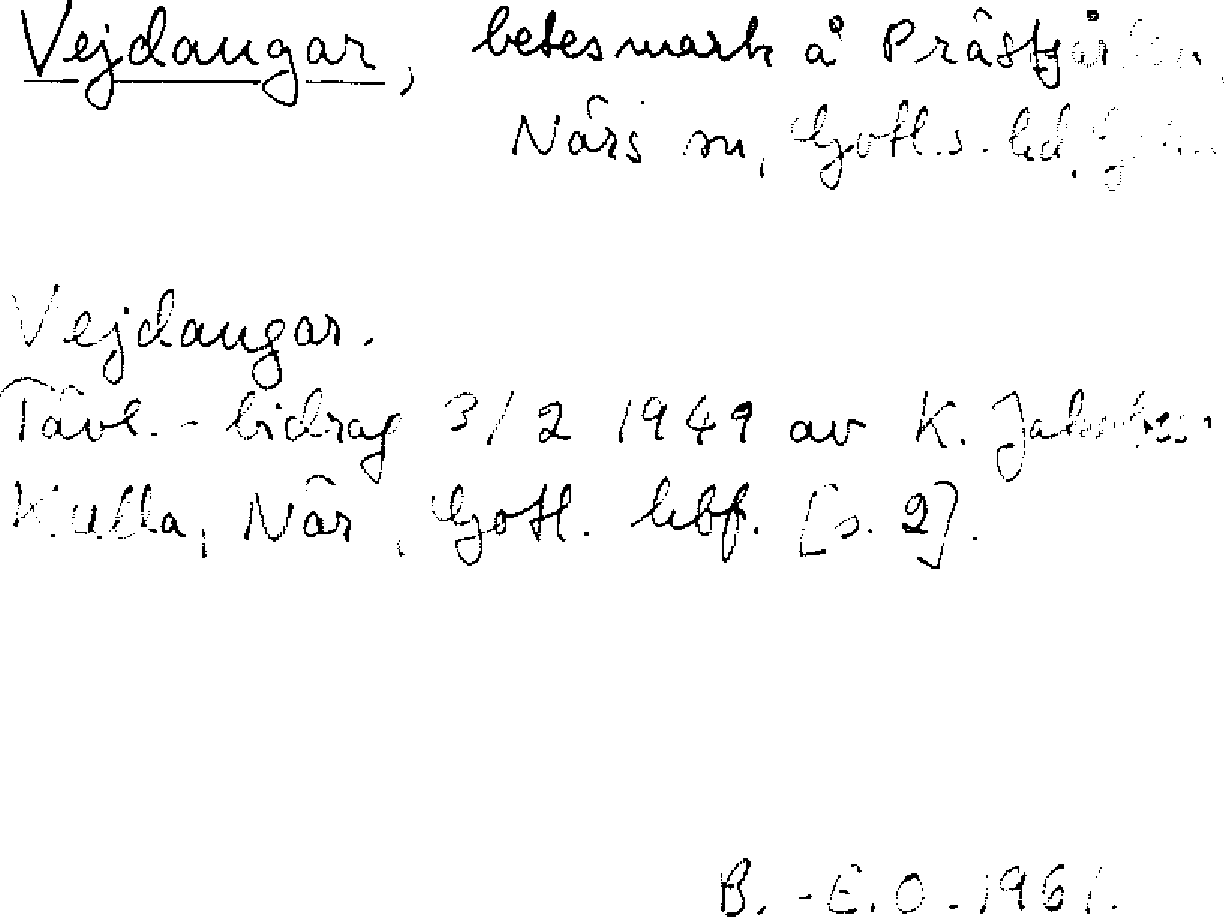 Vejdaugar, betesmark å Prästgården,
Närs sn, Gotl. s. hd,
Vejdaugar.
Tävl.-bidrag 3/2 1949 av K. Jakobsson
Kulla, När, Gotl. hbf. [s. 2].
B.-E.O. 1961.